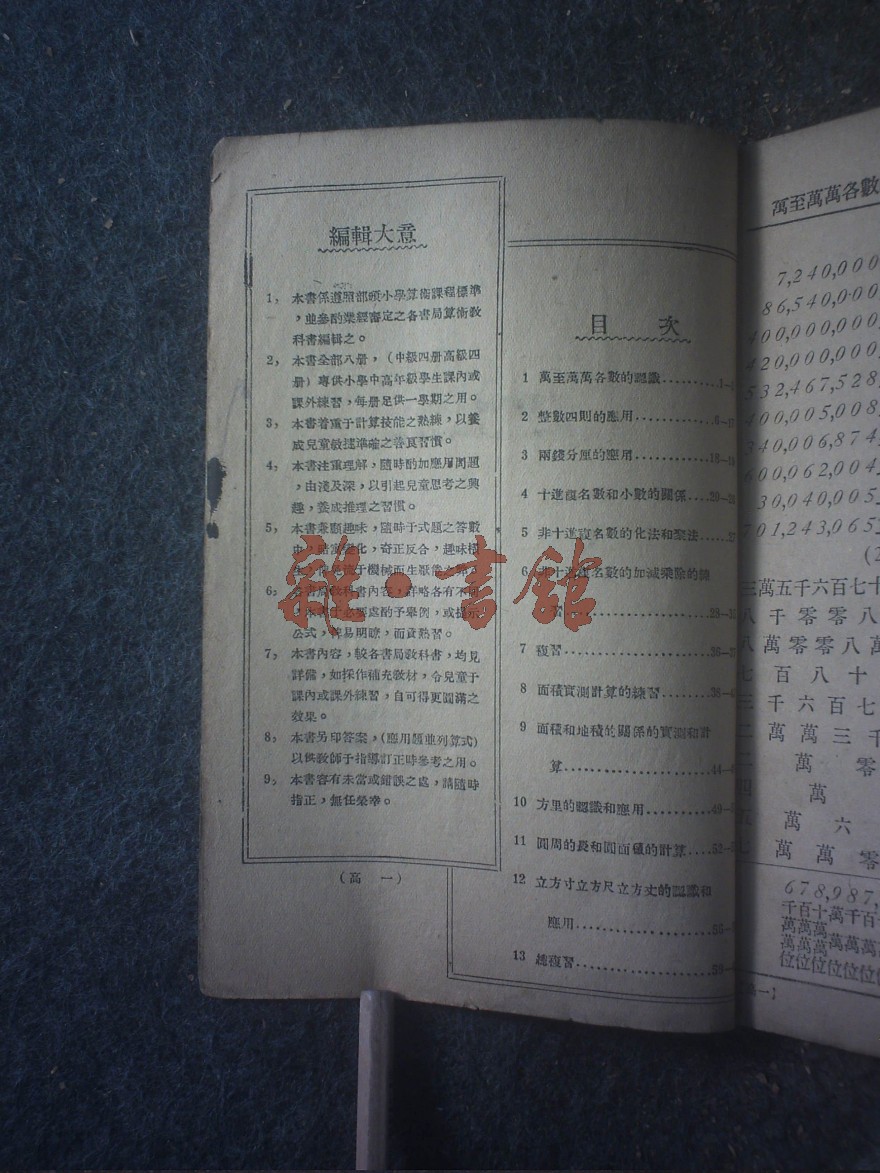 編輯大意
1， 本書係遵照部頒小學算術課程標準
，並參酌業經審定之各書局算術教
科書編輯之。
2， 本書全部八册，（中級四册高級四
册）專供小學中高年級學生課內或
課外練習，每册足供一學期之用。
3， 本書着重于計算技能之熟練，以養
成兒童敏捷準確之善良習慣。
4， 本書注重理解，隨時酌加應用問題
，由淺及深，以引起兒童思考之興
趣，養成推理之習慣。
5， 本書兼顧趣味，隨時于式題之答數
變化，奇正反合，趣味
于機械而生厭
6， 各書局教科書內容，詳略各有不同
本書于必要處酌予舉例，或提示
公式，俾易明瞭，而資熟習。
7， 本書內容，較各書局教科書，均見
詳備，如採作補充教材，令兒童于
課內或課外練習，自可得更圓滿之
效果。
8， 本書另印答案，（應用題並列算式）
以供教師于指導訂正時參考之用。
9， 本書容有未當或錯誤之處，請隨時
指正，無任榮幸。
（高一）
目 次
1 萬至萬萬各數的認識..........1-
2 整數四則的應用..............6-
3 兩錢分厘的應用..............
4 十進複名數和小數的關係....20-
5 非十進複名數的化法和聚法....27
6 非十進複名數的加減乘除的練
習....................28-
7 複習......................36-
8 面積實測計算的練習........38-
9 面積和地積的關係的實測和計
算....................44-
10 方里的認識和應用..........49-
11 圓周的長和圓面積的計算....52-
12 立方寸立方尺立方丈的認識和
應用....................55-
13 總複習....................59-
萬至萬萬各數
7,240,000
86,540,000
400,000,000
420,000,000
532,467,528
400,005,008
340,006,874
600,062,004
30,040,005
701,243,065
三萬五千六百七十
八千零零八
八萬零零八萬
七百八十
千六百七
萬萬三千
萬 零
萬
萬 六
萬萬零
678,987,
千百十萬千百十
萬萬萬
萬萬萬萬萬萬
位位位位位位位
雜·書館